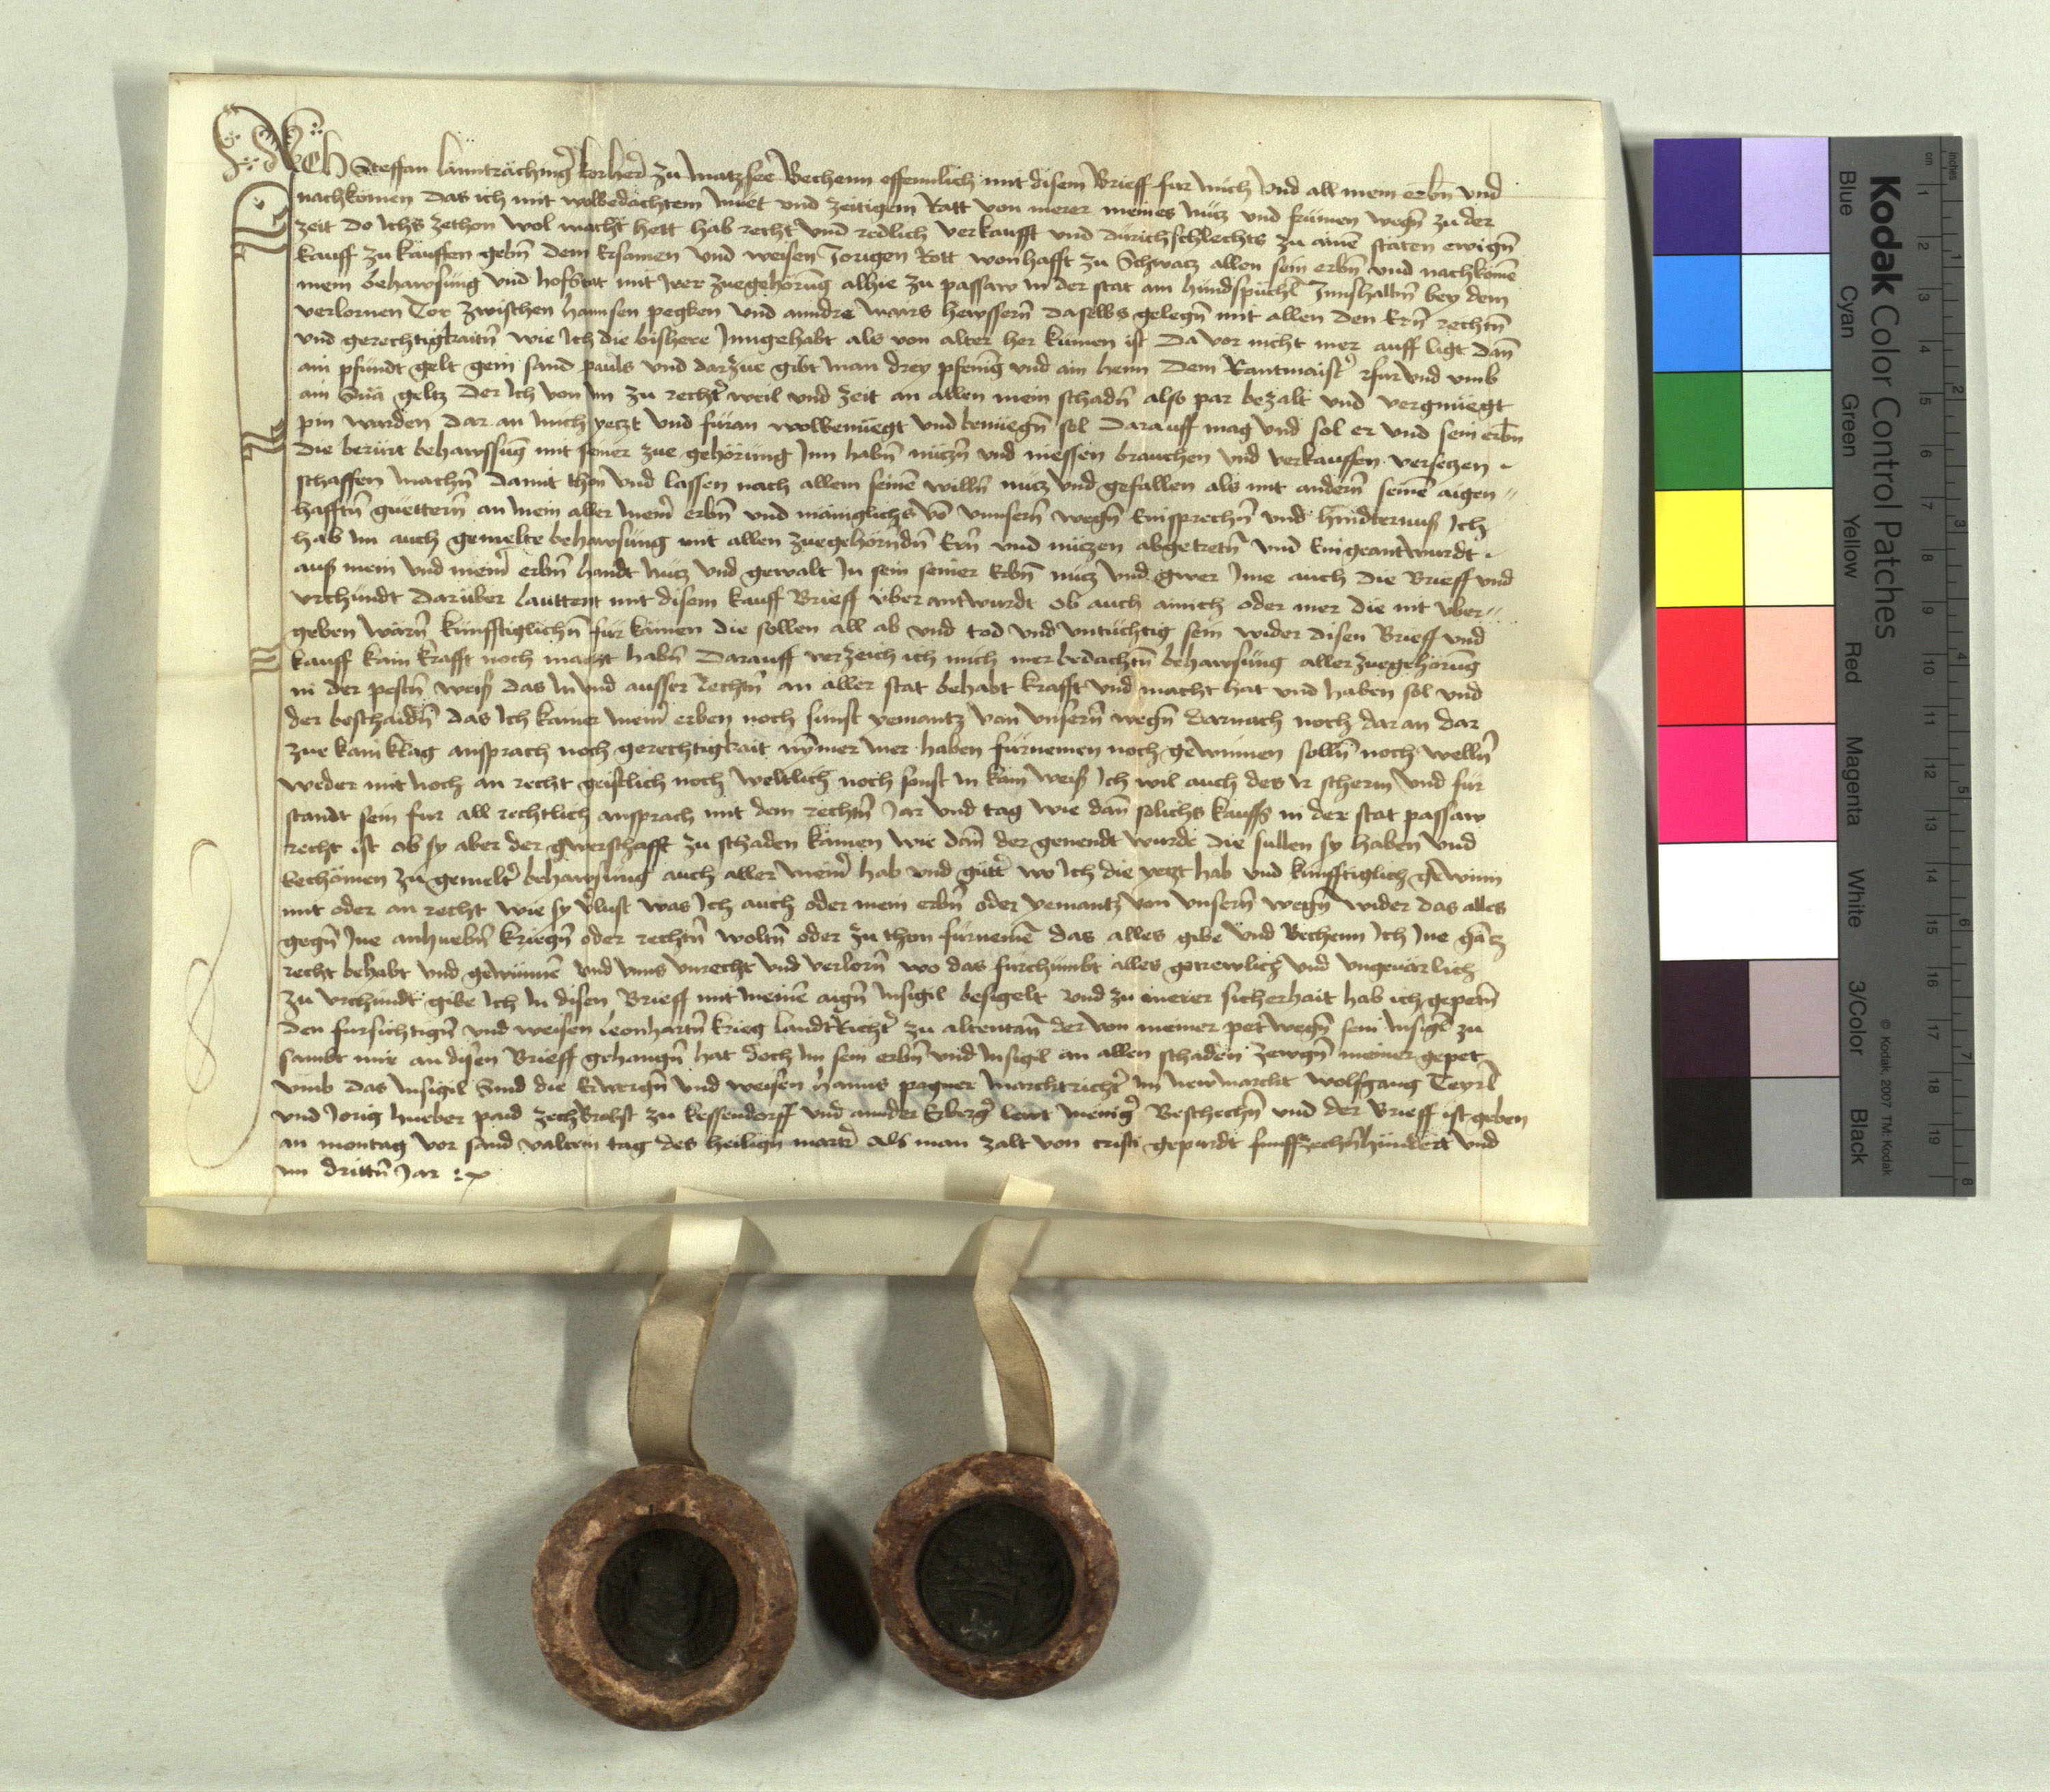 Ich Steffan lanntrachingr korherr zu Matzsee Bechenn offennlich mit disem Brieff fur mich vnd all mein erbn vnd
nachkomen das ich mit wolbedachtem muet vnd zeitigem Ratt von merer meines nutz vnd frumen wegn zu der
zeit do Ichs zethon wol macht hett hab recht vnd redlich verkaufft vnd durichschlechts zu aine staten ewign
kauff zu kauffen gebn dem Ersamen vnd weisen Jorigen Rott wonhafft zu Schwatz allen sein erbn vnd nachkome
mein behawsung vnd hofstat mit irer zuegehorung alhie zu passaw in der stat am hundspuchl Innshalbn bey dem
verlornen Tor zwischen hannsen pegken vnd anndre mairs hewssern daselbs gelegn mit allen den Ern rechtn
vnd gerechtigkaitn wie Ich die bishere Inngehabt als von alter her kumen ist Da vor nicht mer auff ligt dan
ain pfundt gelt gein sand pauls vnd darzue gibt man drey pfenig vnd ain henn dem Rantmaistr vnd vmb
ain Sua geltz der Ich von im zu rechtr weil vnd zeit an allen mein schadn also par bezalt vnd vergnuegt
pin warden dar an mich yetzt vnd furan wolbenuegt vnd benuegn sol Darauff mag vnd sol er vnd sein erbn
die berurt behawssug mit seiner zue gehorung Inn habn nutzn vnd niessen brauchen vnd verkauffen versetzen
schaffen machn damit thon vnd lassen nach allem seine willn nutz vnd gefallen als mit andern seine aigen
hafftn guettern an mein aller meinr erbn vnd mainglichs vo vnnsern wegn Einsprechn vnd hindernuss Ich
hab im auch gemelte behawsung mit allen zuegehorndn Ern vnd nutzen abgetretn vnd Eingeantwurdt
auss mein vnd meinr erbn handt nutz vnd gewalt In sein seiner Erbn nutz vnd gwer Ime auch die Brieff vnd
vrchundt daruber lauttent mit disem kauff Brieff vber antwurdt ob auch ainich oder mer die nit vber
geben warn kunfftiglichn fur kamen die sollen all ab vnd tod vnd vntuchtig sein wider disen Brieff vnd
kauff kain krafft noch macht habn Darauff verzeich ich mich mer bedachtn behawsung aller zuegehorung
in der pestn weiss das In vnd ausser Rechtn an aller stat behabt krafft vnd macht hat vnd haben sol vnd
der beschaidn das Ich kainer meinr erben noch sunst yemantz von vnsern wegn darnach noch dar an dar
zue kain klag ansprach noch gerechtigkait nymer mer haben furnemen noch gewinnen solln noch welln
weder mit noch an recht geistlich noch weltlich noch sonst in kain weiss Ich wil auch des Ir scherm vnd fur
standt sein fur all rechtlich ansprach mit dem rechtn Jar vnd tag wie dan solichs kauffs in der stat passaw
recht ist ob sy aber der gwerschafft zu schaden kamen wie dan der genendt wurde die sullen sy haben vnd
bechomen zu gemeltr behawsung auch aller meinr hab vnd guttr wo Ich die yetzt hab vnd kunfftiglich gewinn
mit oder an recht wie sy vlust was Ich auch oder mein erbn oder yemantz von vnsern wegn wider das alles
gegn Ine anhuebn kriegn oder rechtn woltn oder zu thon furneme das alles gibe vnd Bechenn Ich Ine gatz
recht behabt vnd gewunne vnd vnns vnrecht vnd verlorn wo das furchumbt alles getrewlich vnd vngeuarlich
zu vrchundt gibe Ich In disen Brieff mit meine aign Insigil besigelt vnd zu merer sicherhait hab ich gepetn
den fursichtign vnd weisen leonhartn krieg landtRichtr zu altentan der von meiner pet wegn sein Insigl zu
sambt mir an disen Brieff gehangn hat doch Im sein erbn vnd Insigil an allen schaden zewgn meiner gepet
vmb das Insigil Sind die Erwergn vnd weisen hanns pogner marchtrichtr im newmarcht wolfgang Teyrl
vnd Jorig hueber paid zechbrobst zu kessendorff vnd annder Erbergr lewt menigr Beschechn vnd der Brieff ist geben
an montag vor sand valtein tag des heilign martrr Als man zalt von cristi gepurdt funffzechnhundert vnd
im drittn Jar
Kodak Color Control Patches
Blue Cyan Green Yellow Red Magenta White 3/Color Black
© Kodak, 2007 TM: Kodak
inches 1 2 3 4 5 6 7 8
cm 1 2 3 4 5 6 7 8 9 10 11 12 13 14 15 16 17 18 19